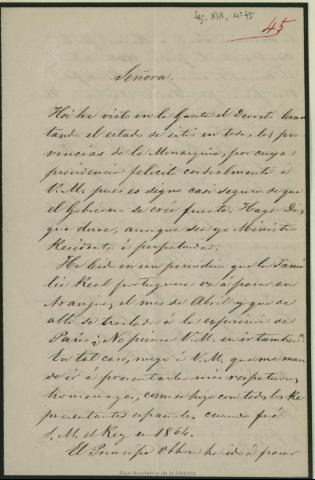 Leg. XIX, nº 45
45
Señora.
Hoi he visto en la Gaceta el Decreto levan
tando el estado de sitio en todas las pro
vincias de la Monarquia, por cuya
providencia felicito cordialmente á
V.M. pues es signo casi seguro de que
el Gobierno se crée fuerte. Haga Dios
que dure, aunque sea yo Ministro
Residente á perpetuidad.
He leido en un periodico que la Fami
lia Real portuguesa va á pasar en
Aranjuez el mes de Abril y que de
alli se traslada á la esposicion de
Paris ¿No piensa V.M. en ir tambien?
En tal caso, ruego á V.M. que me man
de ir á presentarle mis respetuosos
homenages, como se hizo con todos los Re
presentantes españoles, cuando fué
S. M. el Rey en 1864.
El Principe Othon ha ido á pasar
Real Academia de la Historia